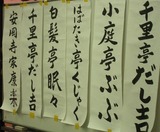 千里亭だし吉
小庭亭ぶぶ
はばたき亭くじゃく
白髪亭眠々
千里亭だし吉
安岡寺家慶楽